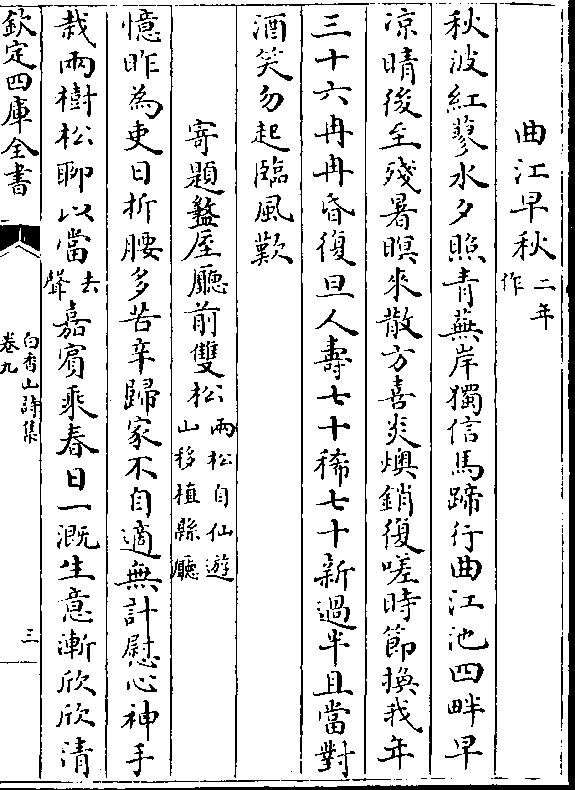 曲江早秋二年作
秋波紅蓼水夕照青蕪岸獨信馬蹄行曲江池四畔早
凉晴後至殘暑暝來散方喜炎燠銷復嗟時節換我年
三十六冉冉昏復旦人壽七十稀七十新過半且當對
酒笑勿起臨風歎
寄題盩厔廳前雙松兩松自仙遊山移植縣廳
憶昨為吏日折腰多苦辛歸家不自適無計慰心神手
栽兩樹松聊以當去聲嘉賓乘春日一溉生意漸欣欣清
欽定四庫全書
白香山詩集
卷九
三